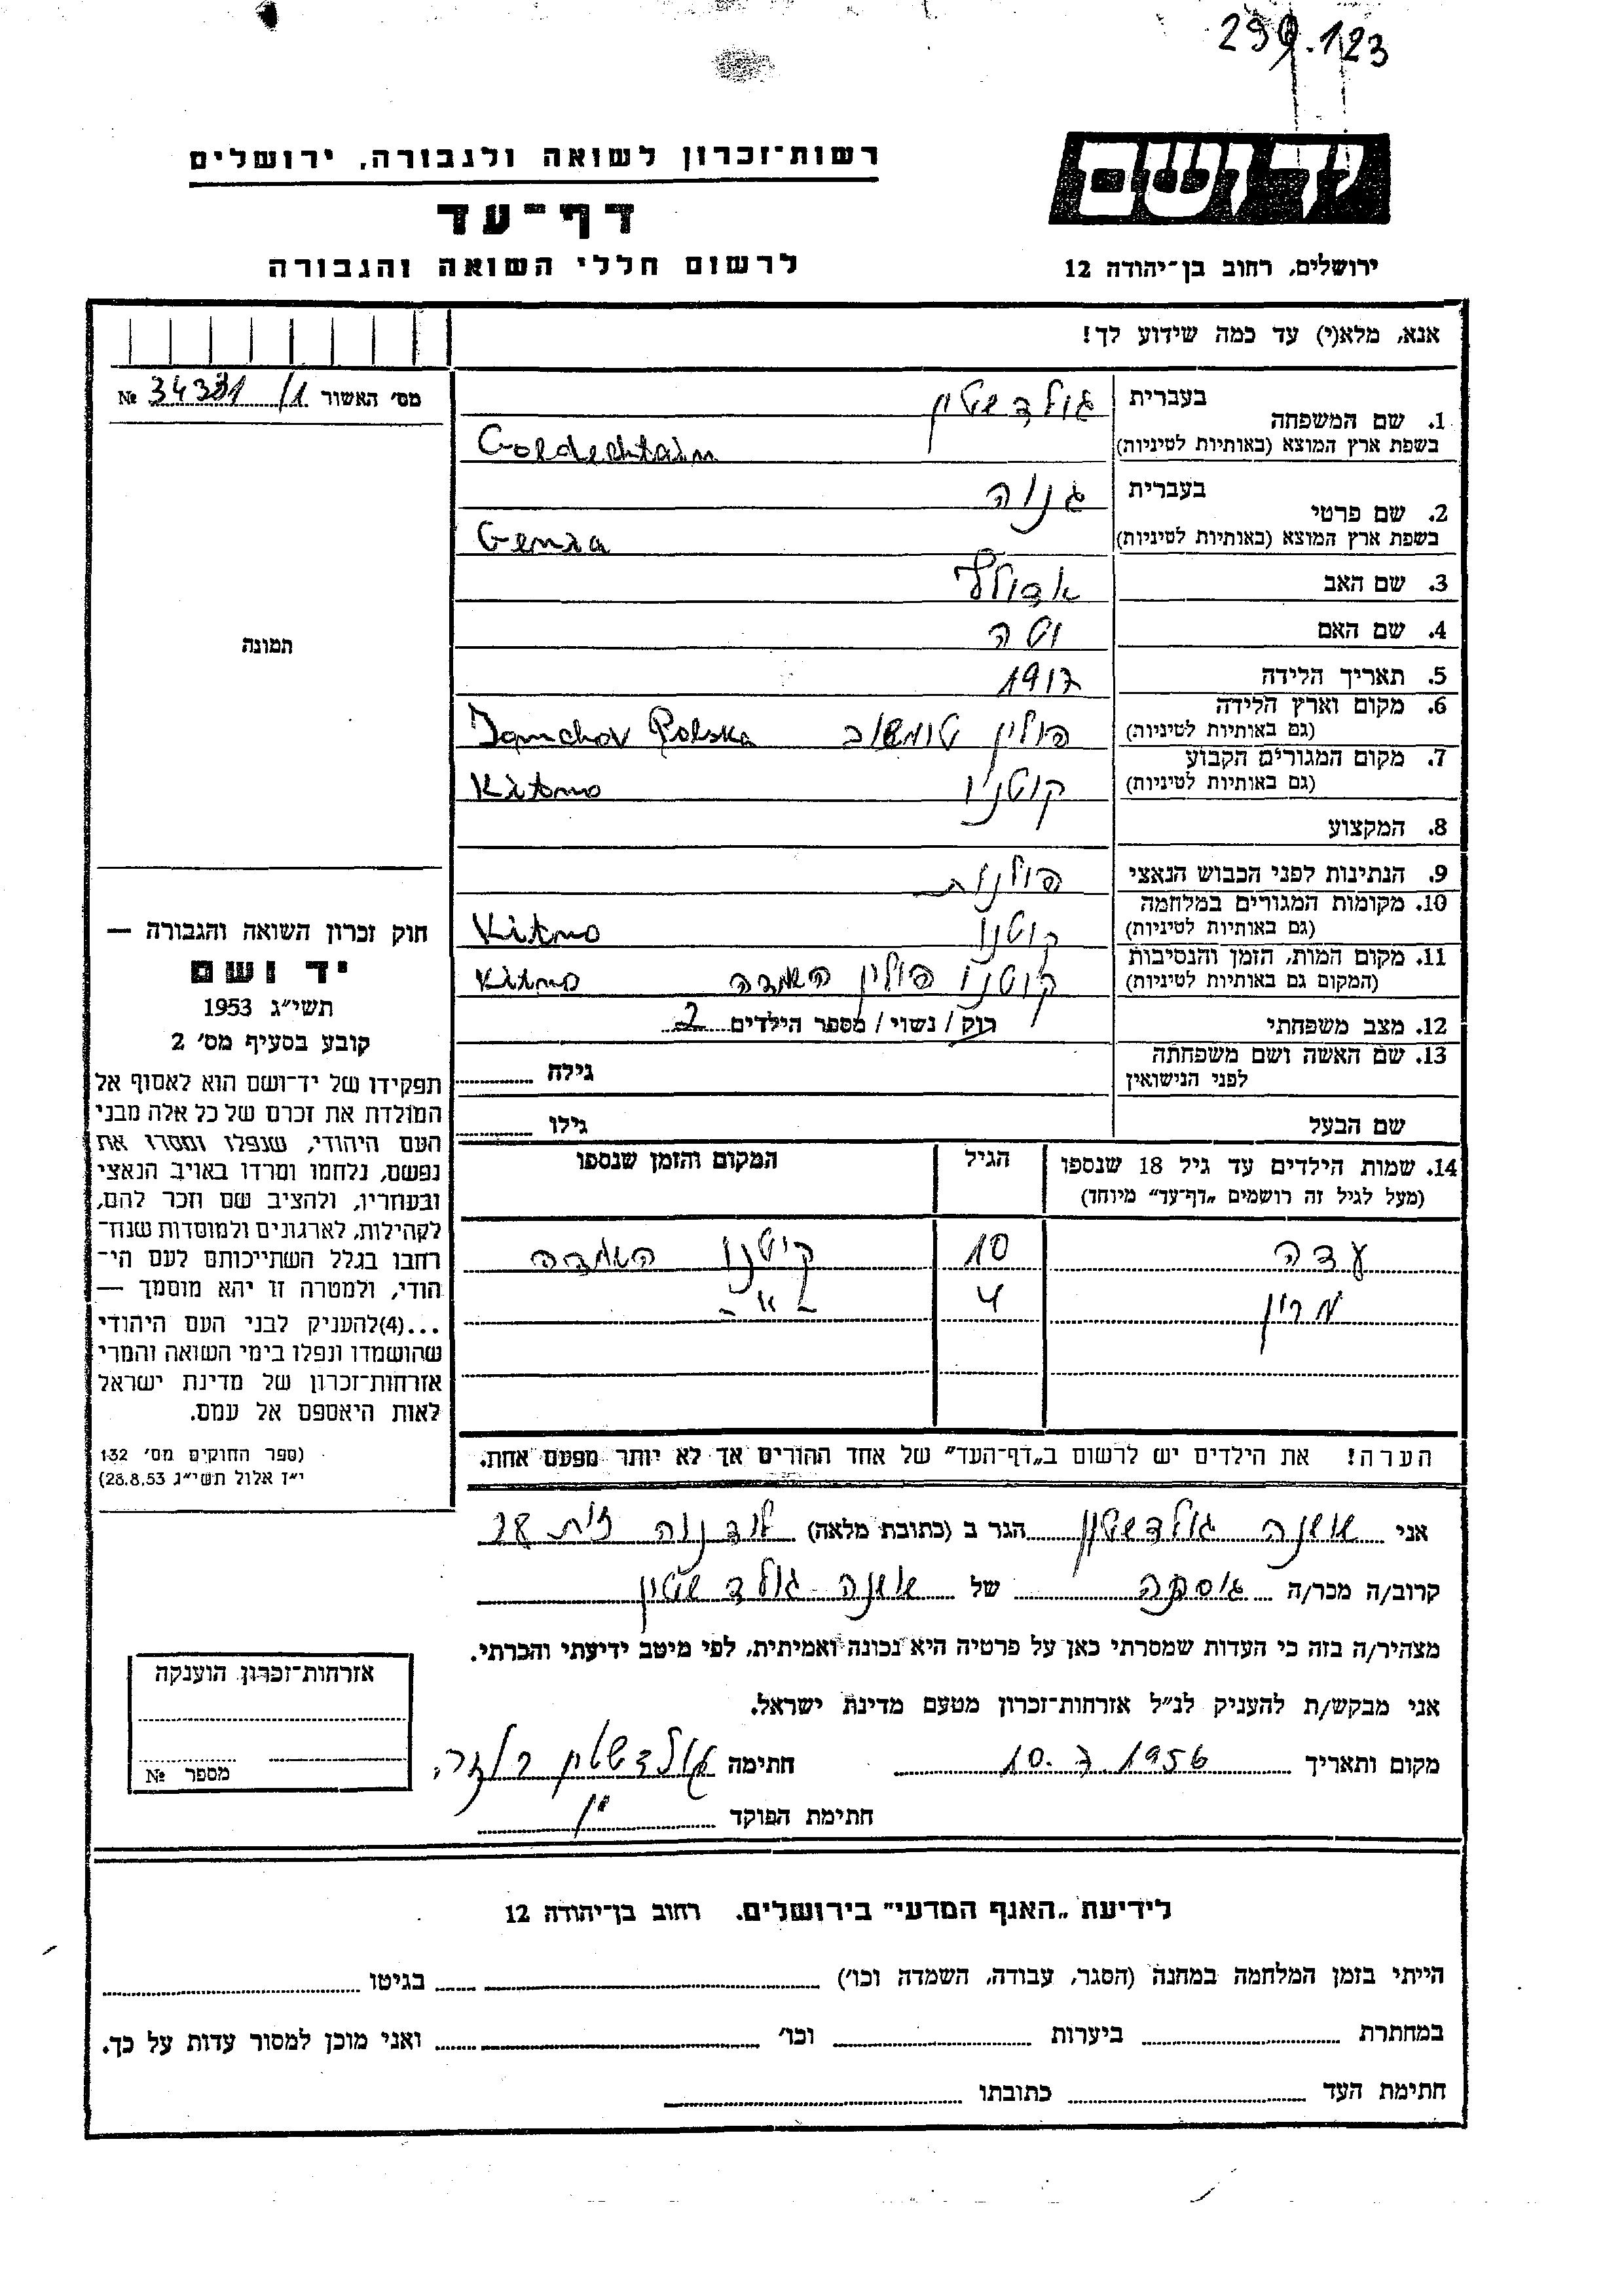 299.123
יד ושם
ירושלים, רחוב בן־יהודה 12
רשות־זכרון לשואה ולגבורה, ירושלים
דף־עד
לרשום חללי השואה והגבורה
אנא, מלא(י) עד כמה שידוע לך!
מס׳ האשור 34331/1 №
תמונה
1. שם המשפחה בעברית גולדשטין
בשפת ארץ המוצא (באותיות לטיניות) Goldechtain
2. שם פרטי בעברית גניה
בשפת ארץ המוצא (באותיות לטיניות) Genia
3. שם האב אדולף
4. שם האם
5. תאריך הלידה 1917
6. מקום וארץ הלידה
(גם באותיות לטיניות) פולין טומשוב Tomchov Polska
7. מקום המגורים הקבוע
(גם באותיות לטיניות) קוטנו Kitno
8. המקצוע
9. הנתינות לפני הכבוש הנאצי פולנית
10. מקומות המגורים במלחמה
(גם באותיות לטיניות) קוטנו Kitno
11. מקום המות, הזמן והנסיבות
(המקום גם באותיות לטיניות) קוטנו פולין השמדה Kitno
12. מצב משפחתי רוק / נשוי / מספר הילדים 2
13. שם האשה ושם משפחתה
לפני הנישואין גילה
שם הבעל גילו
14. שמות הילדים עד גיל 18 שנספו הגיל המקום והזמן שנספו
(מעל לגיל זה רושמים „דף־עד” מיוחד)
עדה 10 קוטנו השמדה
מרון 4 – " –
הערה! את הילדים יש לרשום ב„דף־העד” של אחד ההורים אך לא יותר מפעם אחת.
חוק זכרון השואה והגבורה —
יד ושם
תשי״ג 1953
קובע בסעיף מס׳ 2
תפקידו של יד־ושם הוא לאסוף אל
המולדת את זכרם של כל אלה מבני
העם היהודי, שנפלו ומסרו את
נפשם, נלחמו ומרדו באויב הנאצי
ובעוזריו, ולהציב שם וזכר להם,
לקהילות, לארגונים ולמוסדות שנח־
רבו בגלל השתייכותם לעם הי־
הודי, ולמטרה זו יהא מוסמך —
...(4)להעניק לבני העם היהודי
שהושמדו ונפלו בימי השואה והמרי
אזרחות־זכרון של מדינת ישראל
לאות היאספם אל עמם.
(ספר החוקים מס׳ 132
י״ז אלול תשי״ג 28.8.53)
אני שושנה גולדשטין הגר ב (כתובת מלאה) 28
קרוב/ה מכר/ה גיסתה של שושנה גולדשטין
מצהיר/ה בזה כי העדות שמסרתי כאן על פרטיה היא נכונה ואמיתית, לפי מיטב ידיעתי והכרתי.
אני מבקש/ת להעניק לנ״ל אזרחות־זכרון מטעם מדינת ישראל.
מקום ותאריך 10.7.1956 חתימה גולדשטין
חתימת הפוקד
אזרחות־זכרון הוענקה
מספר №
לידיעת „האגף המדעי” בירושלים. רחוב בן־יהודה 12
הייתי בזמן המלחמה במחנה (הסגר, עבודה, השמדה וכו׳) בגיטו
במחתרת ביערות וכו׳ ואני מוכן למסור עדות על כך.
חתימת העד כתובתו